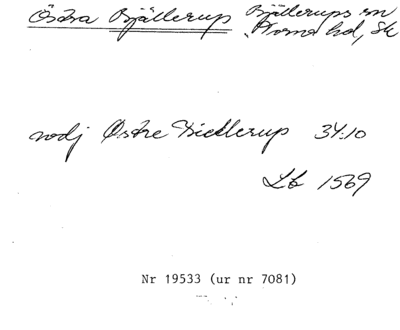 Östra Bjällerup Bjällerups sn
Torna hd, Sk
nodj Østre Biellerup 34:10
Lb 1569
Nr 19533 (ur nr 7081)